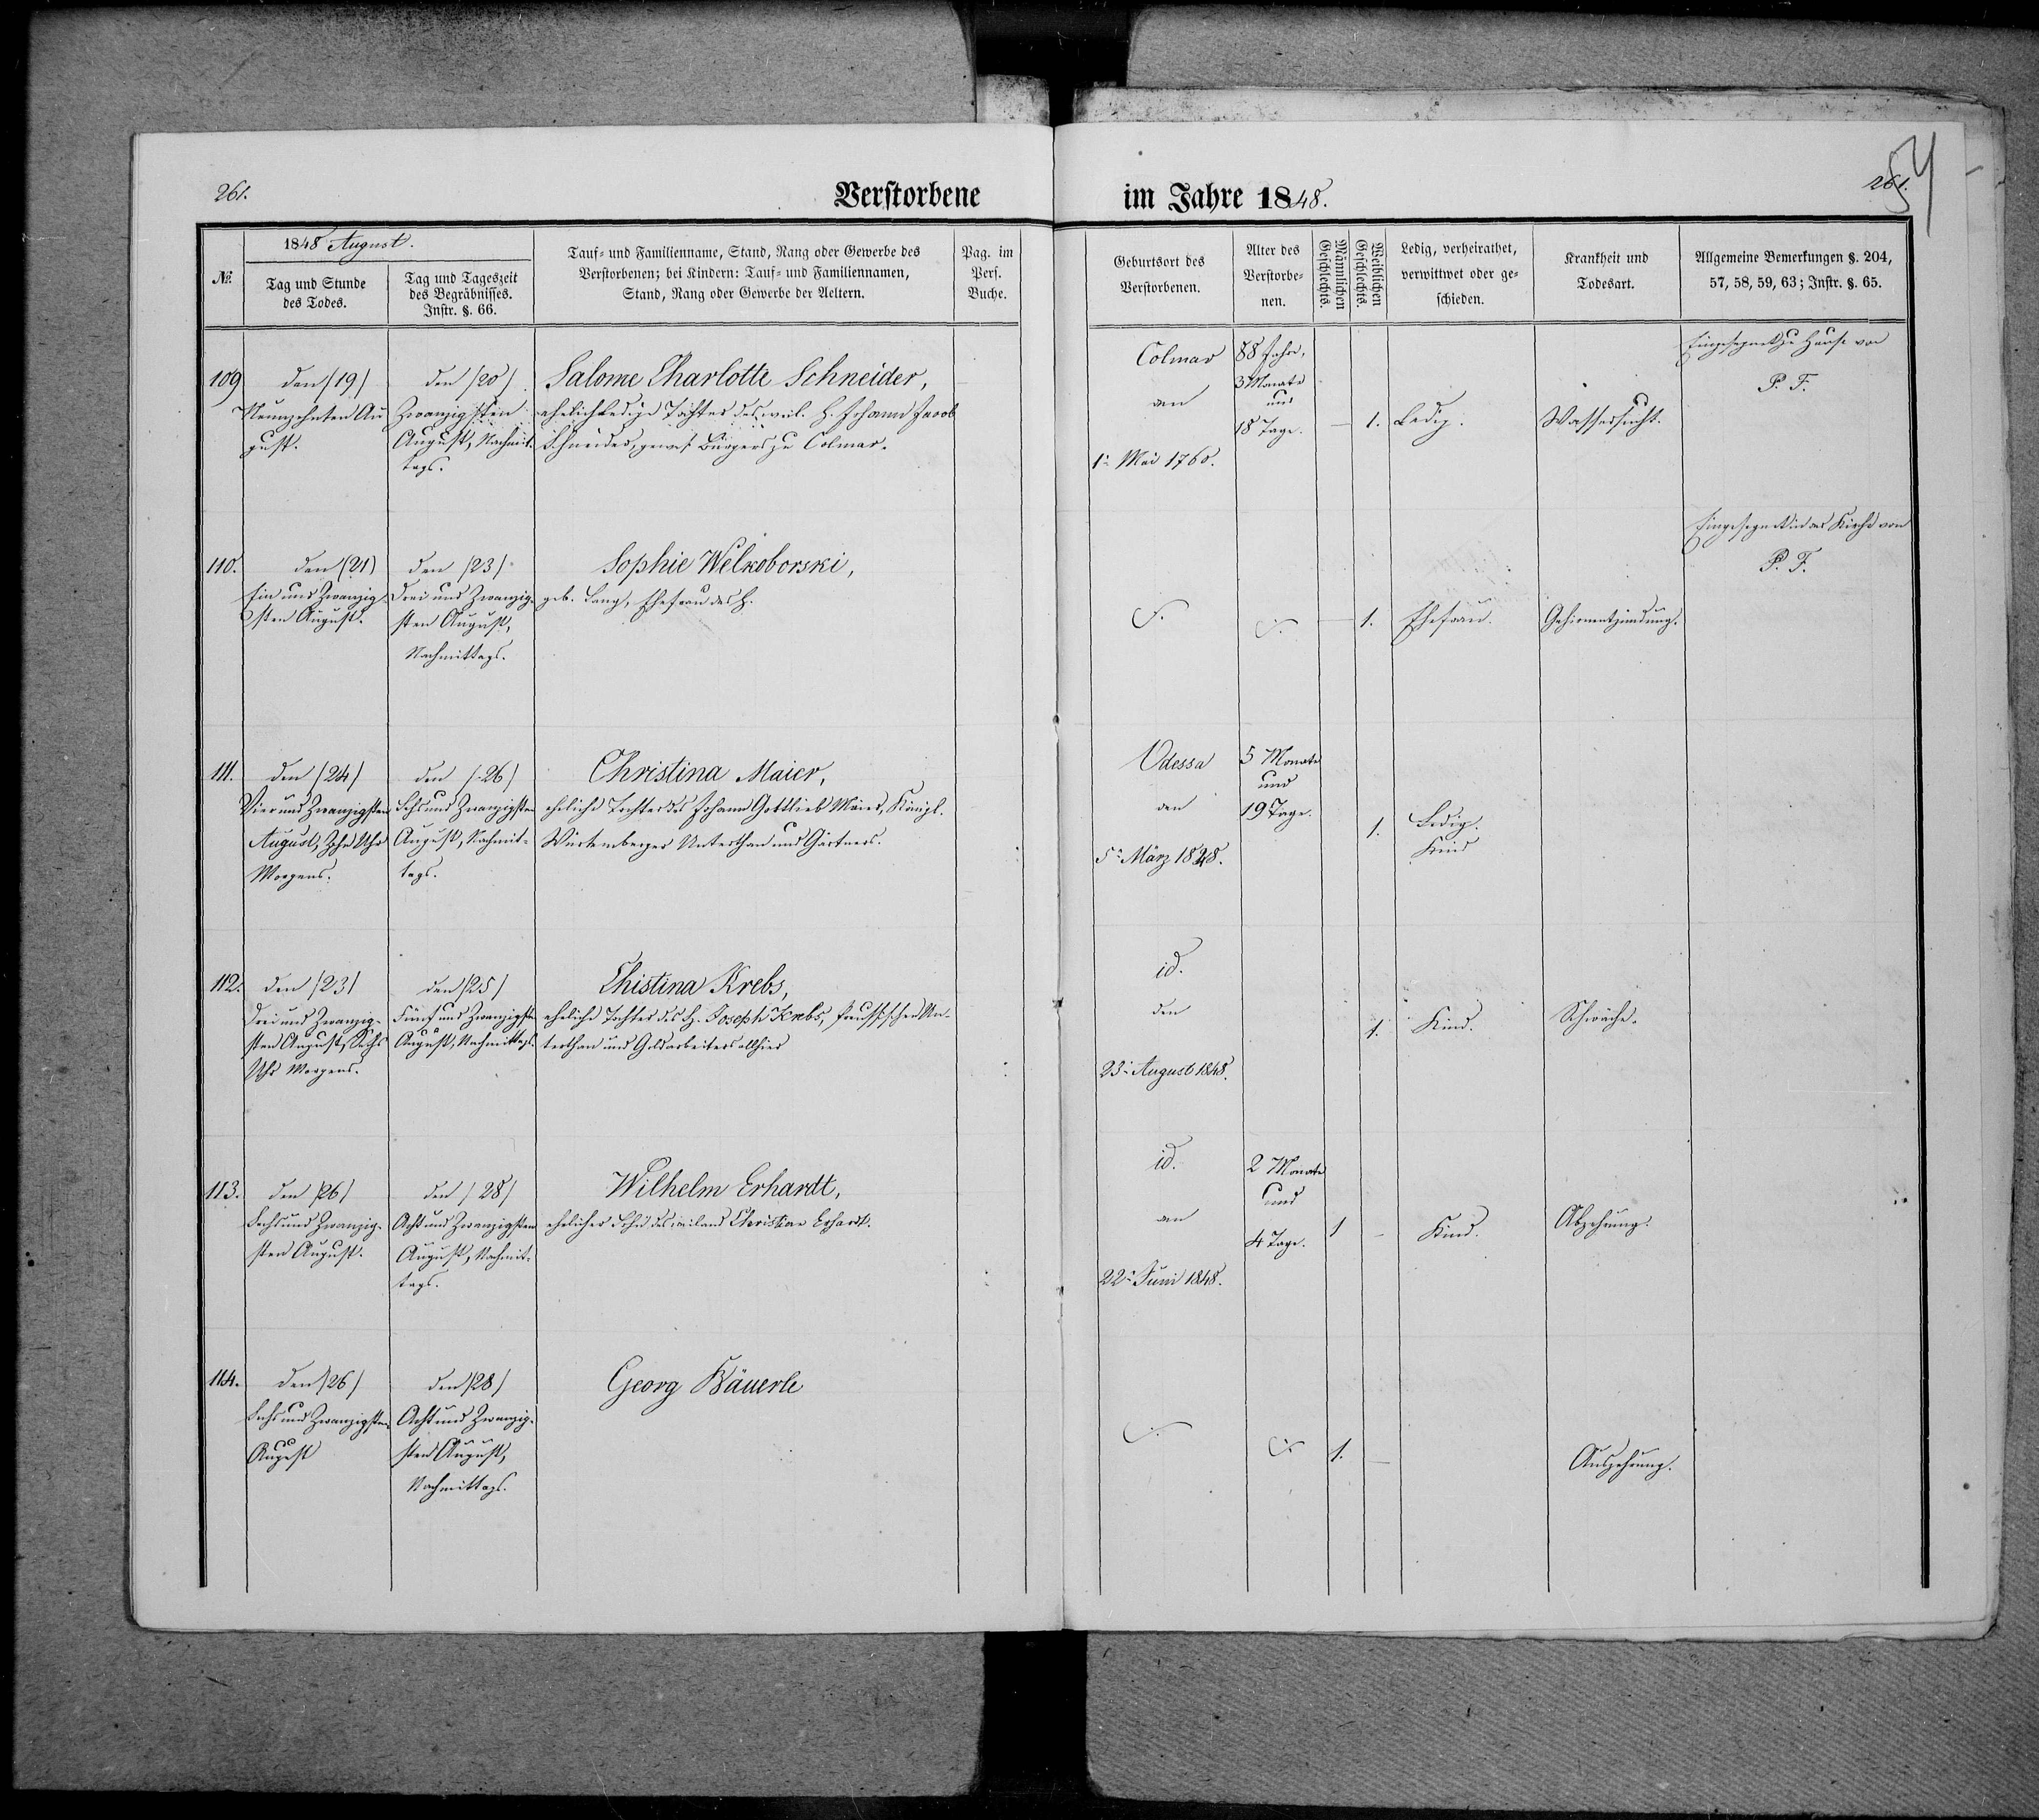 261.
Verstorbene
im Jahre 1848.
261.
54
№
1848 August.
Tag und Stunde
des Todes.
Tag und Tageszeit
des Begräbnisses.
Instr. §. 66.
Tauf- und Familienname, Stand, Rang oder Gewerbe des
Verstorbenen; bei Kindern: Tauf- und Familiennamen,
Stand, Rang oder Gewerbe der Aeltern.
Pag. im
Pers.
Buche.
Geburtsort des
Verstorbenen.
Alter des
Verstorbe-
nen.
Männlichen
Geschlechts.
Weiblichen
Geschlechts.
Ledig, verheirathet,
verwittwet oder ge-
schieden.
Krankheit und
Todesart.
Allgemeine Bemerkungen §. 204,
57, 58, 59, 63; Instr. §. 65.
109
den (19)
Neunzehnten Au
gust.
den (20)
Zwanzigsten
August, Nachmit-
tags.
Salome Charlotte Schneider,
ehelich ledige Tochter des weil. H. Johann Jacob
Schneider, gewes. Bürgers zu Colmar.
Colmar
am
1n Mai 1760.
88 Jahr,
3 Monate
und
18 Tage.
1.
Ledig.
Wassersucht.
Eingesegnet zu Hause von
P. F.
110.
den (21)
Ein und Zwanzig-
sten August.
den (23)
Drei und Zwanzig-
sten August,
Nachmittags.
Sophie Welkoborski,
geb. Lang, Ehefrau des H.
1.
Ehefrau.
Gehirnentzündung.
Eingesegnet in der Kirche von
P. F.
111.
den (24)
Vier und Zwanzigsten
August, Zehn Uhr
Morgens.
den (26)
Sechs und Zwanzigsten
August, Nachmit-
tags.
Christina Maier,
eheliche Tochter des Johann Gottlieb Maier, Königl.
Würtemberger Unterthan und Gärtners.
Odessa
den
5n März 1848.
5 Monate
und
19 Tage.
1.
Ledig.
Kind
112.
den (23)
Drei und Zwanzig-
sten August, Sechs
Uhr Morgens.
den (25)
Fünf und Zwanzigsten
August, Nachmittags.
Christina Krebs,
eheliche Tochter des H. Joseph Krebs, preussischer Un-
terthan und Goldarbeiters allhier
id.
den
23n August 1848.
1.
Kind.
Schwäche.
113.
den (26)
Sechs und Zwanzig-
sten August.
den (28)
Acht und Zwanzigsten
August, Nachmit-
tags.
Wilhelm Erhardt,
ehelicher Sohn des weiland Christian Erhardt.
id.
am
22n Juni 1848.
2 Monate
und
4 Tage.
1
Kind.
Abzehrung.
114.
den (26)
Sechs und Zwanzigsten
August
den (28)
Acht und Zwanzig-
sten August,
Nachmittags.
Georg Bäuerle
1.
Auszehrung.